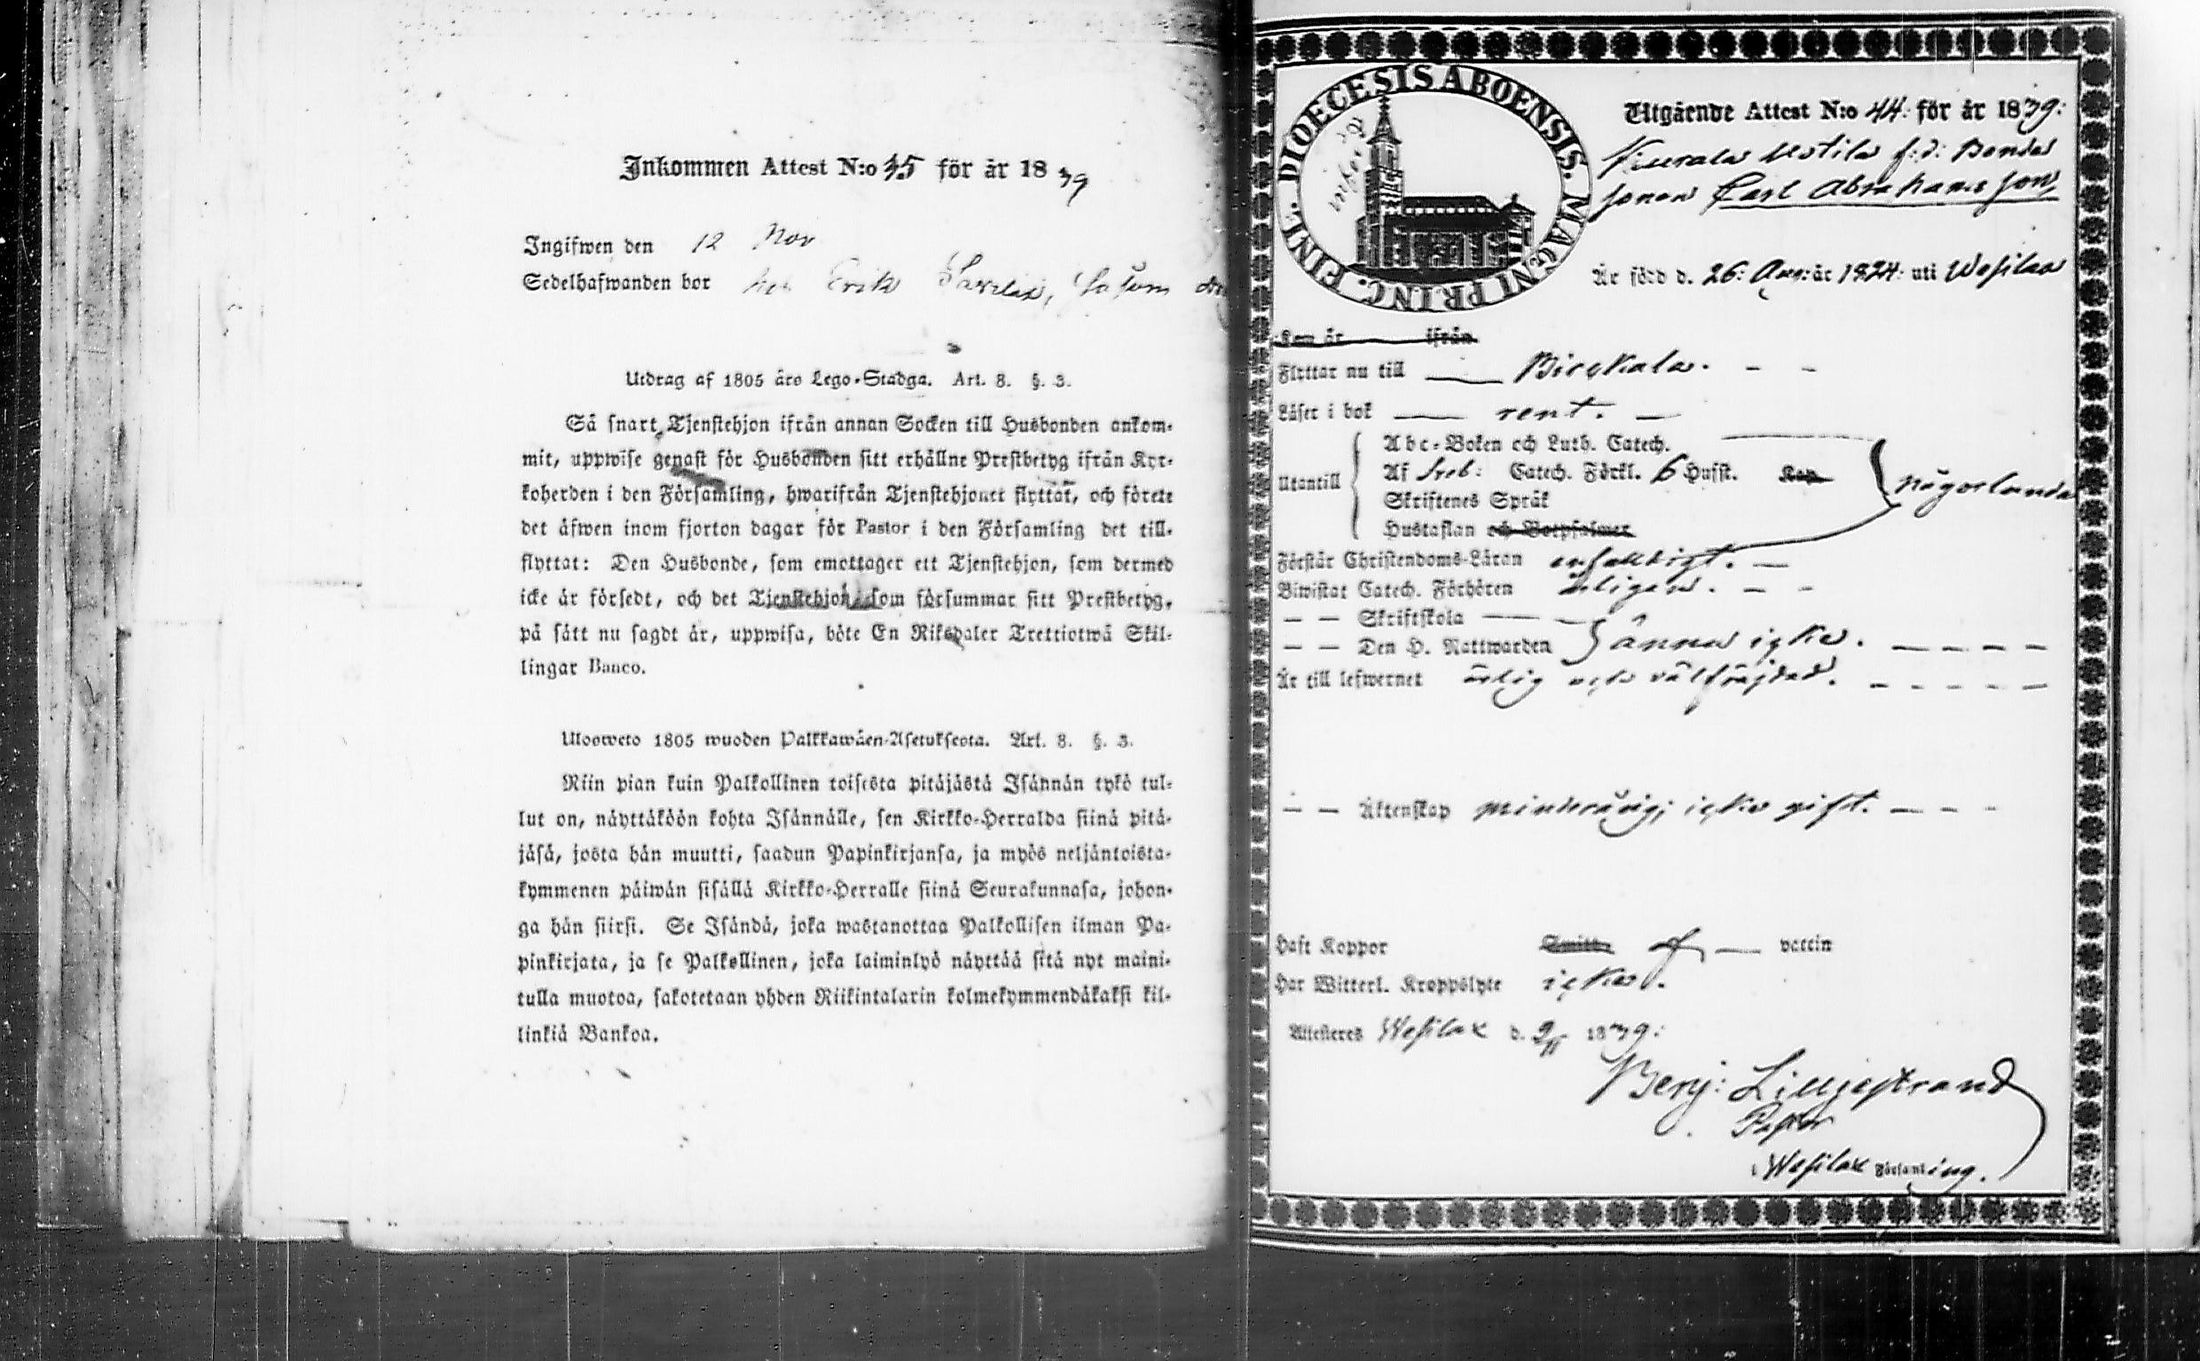 Inkommen Attest N:o 45 för år 1839
Ingifwen den 12 Nov
Sedelhafwanden bor hos Erik
Utdrag af 1805 års Lego-Stadga. Art. 8. §. 3.
Så snart Tjenstehjon ifrån annan Socken till Husbonden ankom-
mit, uppwise genast för Husbonden sitt erhållne Prestbetyg ifrån Kyr-
koherden i den Församling, hwarifrån Tjenstehjonet flyttat, och förete
det äfwen inom fjorton dagar för Pastor i den Församling det till-
flyttat: Den Husbonde, som emottager ett Tjenstehjon, som dermed
icke är försedt, och det Tjenstehjon, som försummar sitt Prestbetyg,
på sätt nu sagdt är, uppwisa, böte En Riksdaler Trettiotwå Skil-
lingar Banco.
Ulosweto 1805 wuoden Palkkawäen-Asetuksesta. Art. 8. §. 3.
Niin pian kuin Palkollinen toisesta pitäjästä Isännän tykö tul-
lut on, näyttäköön kohta Isännälle, sen Kirkko-Herralda siinä pitä-
jäsä, josta hän muutti, saadun Papinkirjansa, ja myös neljäntoista-
kymmenen päiwän sisällä Kirkko-Herralle siinä Seurakunnasa, johon-
ga hän siirsi. Se Isändä, joka wastanottaa Palkollisen ilman Pa-
pinkirjata, ja se Palkollinen, joka laiminlyö näyttää sitä nyt maini-
tulla muotoa, sakotetaan yhden Riikintalarin kolmekymmendäkaksi kil-
linkiä Bankoa.
DIOECESIS ABOENSIS. MAGNI PRINC. FINL.
Utgående Attest N:o 44: för år 1839:
f:d: Bonde
sonen Carl Abrahams son,
Är född d. 26: Aug: år 1824: uti Wesilax
Kom år ifrån
Flyttar nu till Birckala.
Läser i bok rent.
Utantill
Abc-Boken och Luth. Catech.
Af Sveb: Catech. Förkl. 6 Hufst. Kap.
Skriftenes Språk
Hustaflan och Botpsalmer
någorlunda
Förstår Christendoms-Läran enfaldigt.
Biwistat Catech. Förhören årligen.
— — Skriftskola
— — Den H. Nattwarden ännu icke.
Är till lefwernet ärlig och välfräjdad.
— — Äktenskap minderårig; icke gift.
Haft Koppor Smitto vaccin
Har Witterl. Kroppslyte icke.
Attesteres Wesilax d. 9/11 1839:
Benj: Lilljestrand
Pastor
i Wesilax Församling.